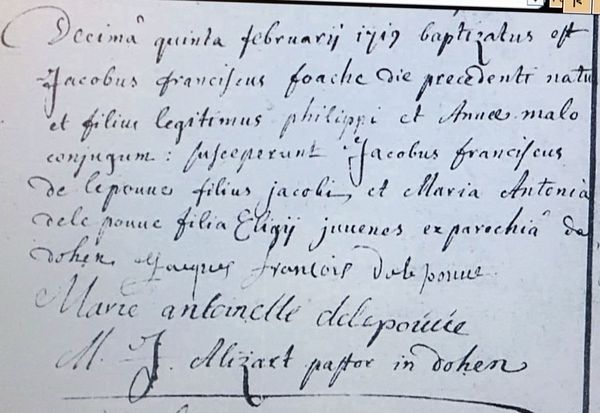 Decimâ quinta februarij 1719 baptizatus est
Jacobus franciscus foache die precedenti natu
et filius legitimus philippi et Annee malo
conjugum : susceperunt Jacobus franciscus
de lepouve filius jacobi, et Maria Antonia
dele pouve filia Eligij juvenes ex parochiâ de
dohen Jacques francois delepouve
Marie antoinette delepouve
M. J. Alizart pastor in dohen